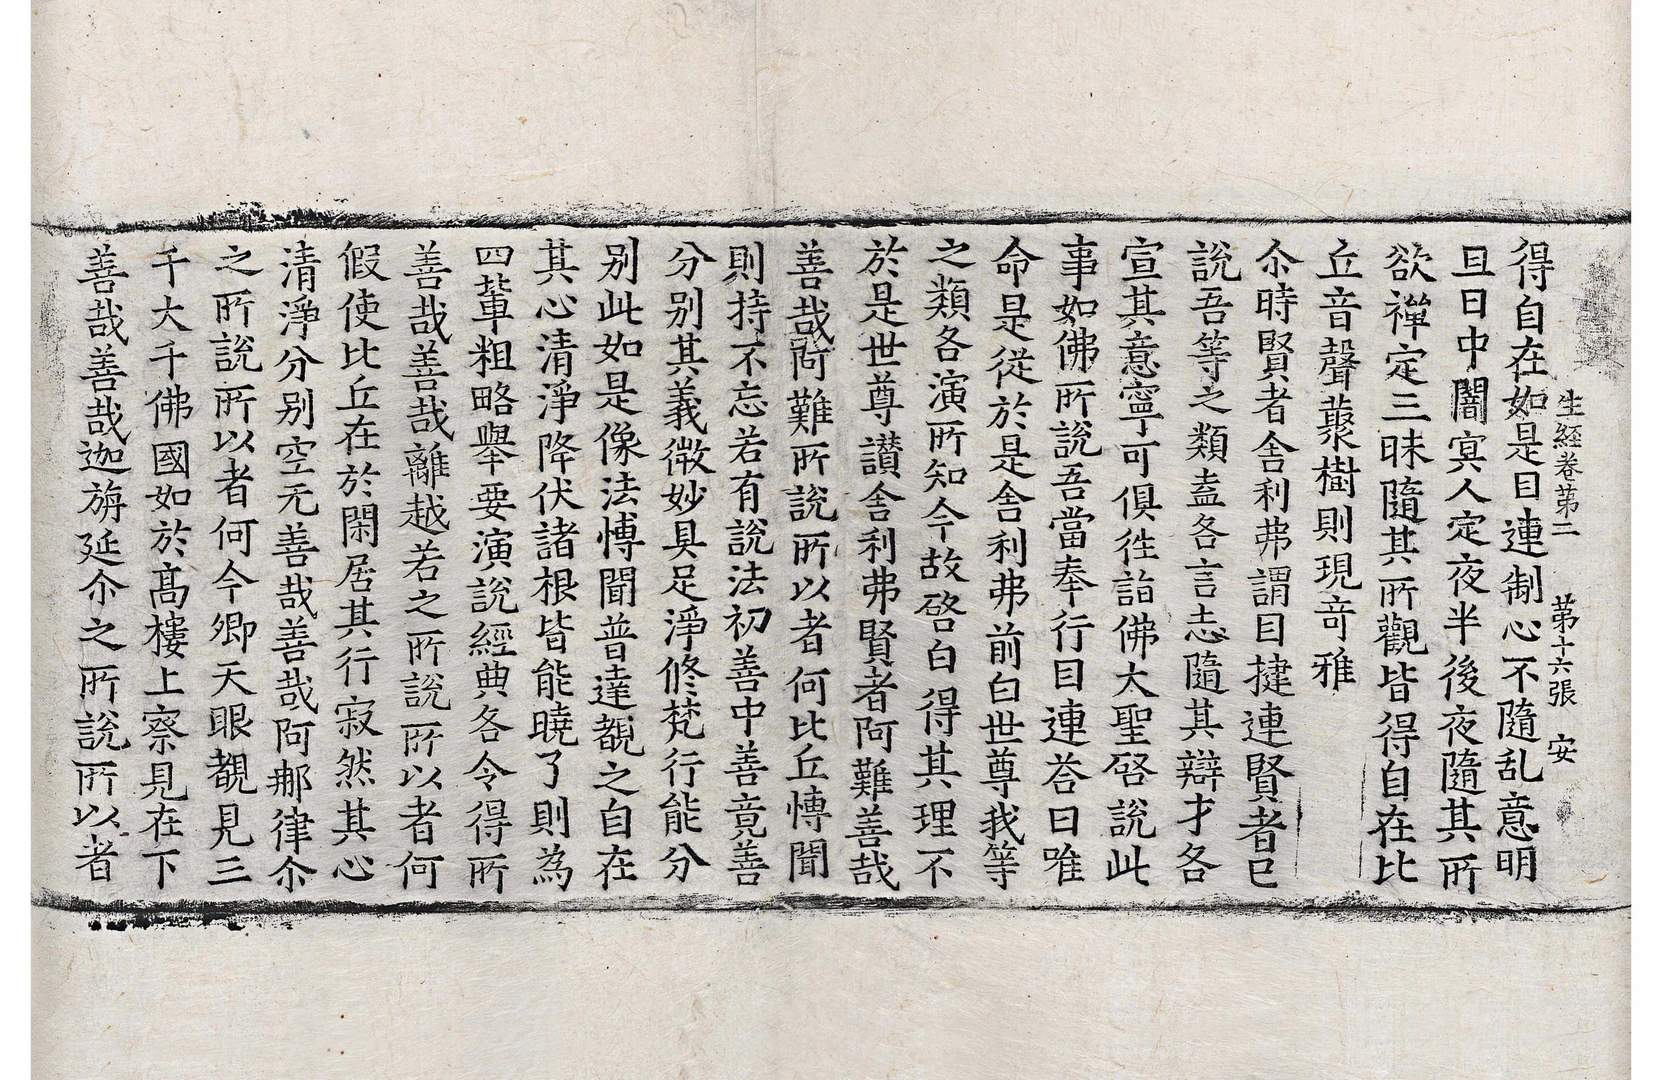 生經卷第二 第十六張 安
得自在如是目連制心不隨乱意明
旦日中闇㝠人定夜半後夜隨其所
欲禪定三昧隨其所觀皆得自在比
丘音聲藂樹則現竒雅
尒時賢者舍利弗謂目揵連賢者已
說吾等之類盍各言志隨其辯才各
宣其意寧可俱徃詣佛大聖啓說此
事如佛所說吾當奉行目連荅曰唯
命是從於是舍利弗前白世尊我等
之類各演所知今故啓白得其理不
於是世尊讃舍利弗賢者阿難善哉
善哉阿難所說所以者何比丘慱聞
則持不忘若有說法初善中善竟善
分别其義微妙具足淨修梵行能分
别此如是像法慱聞普達覩之自在
其心清淨降伏諸根皆能曉了則為
四輩粗略舉要演說經典各令得所
善哉善哉離越若之所說所以者何
假使比丘在於閑居其行寂然其心
清淨分别空无善哉善哉阿那律尒
之所說所以者何今卿天眼覩見三
千大千佛國如於髙樓上察見在下
善哉善哉迦旃延尒之所說所以者